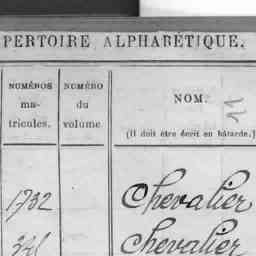 PERTOIRE ALPHABÉTIQUE.
NUMÉROS ma- tricules.
NUMÉRO du volume
NOM.
(Il doit être écrit en bâtarde.)
11
1732 Chevalier
Chevalier